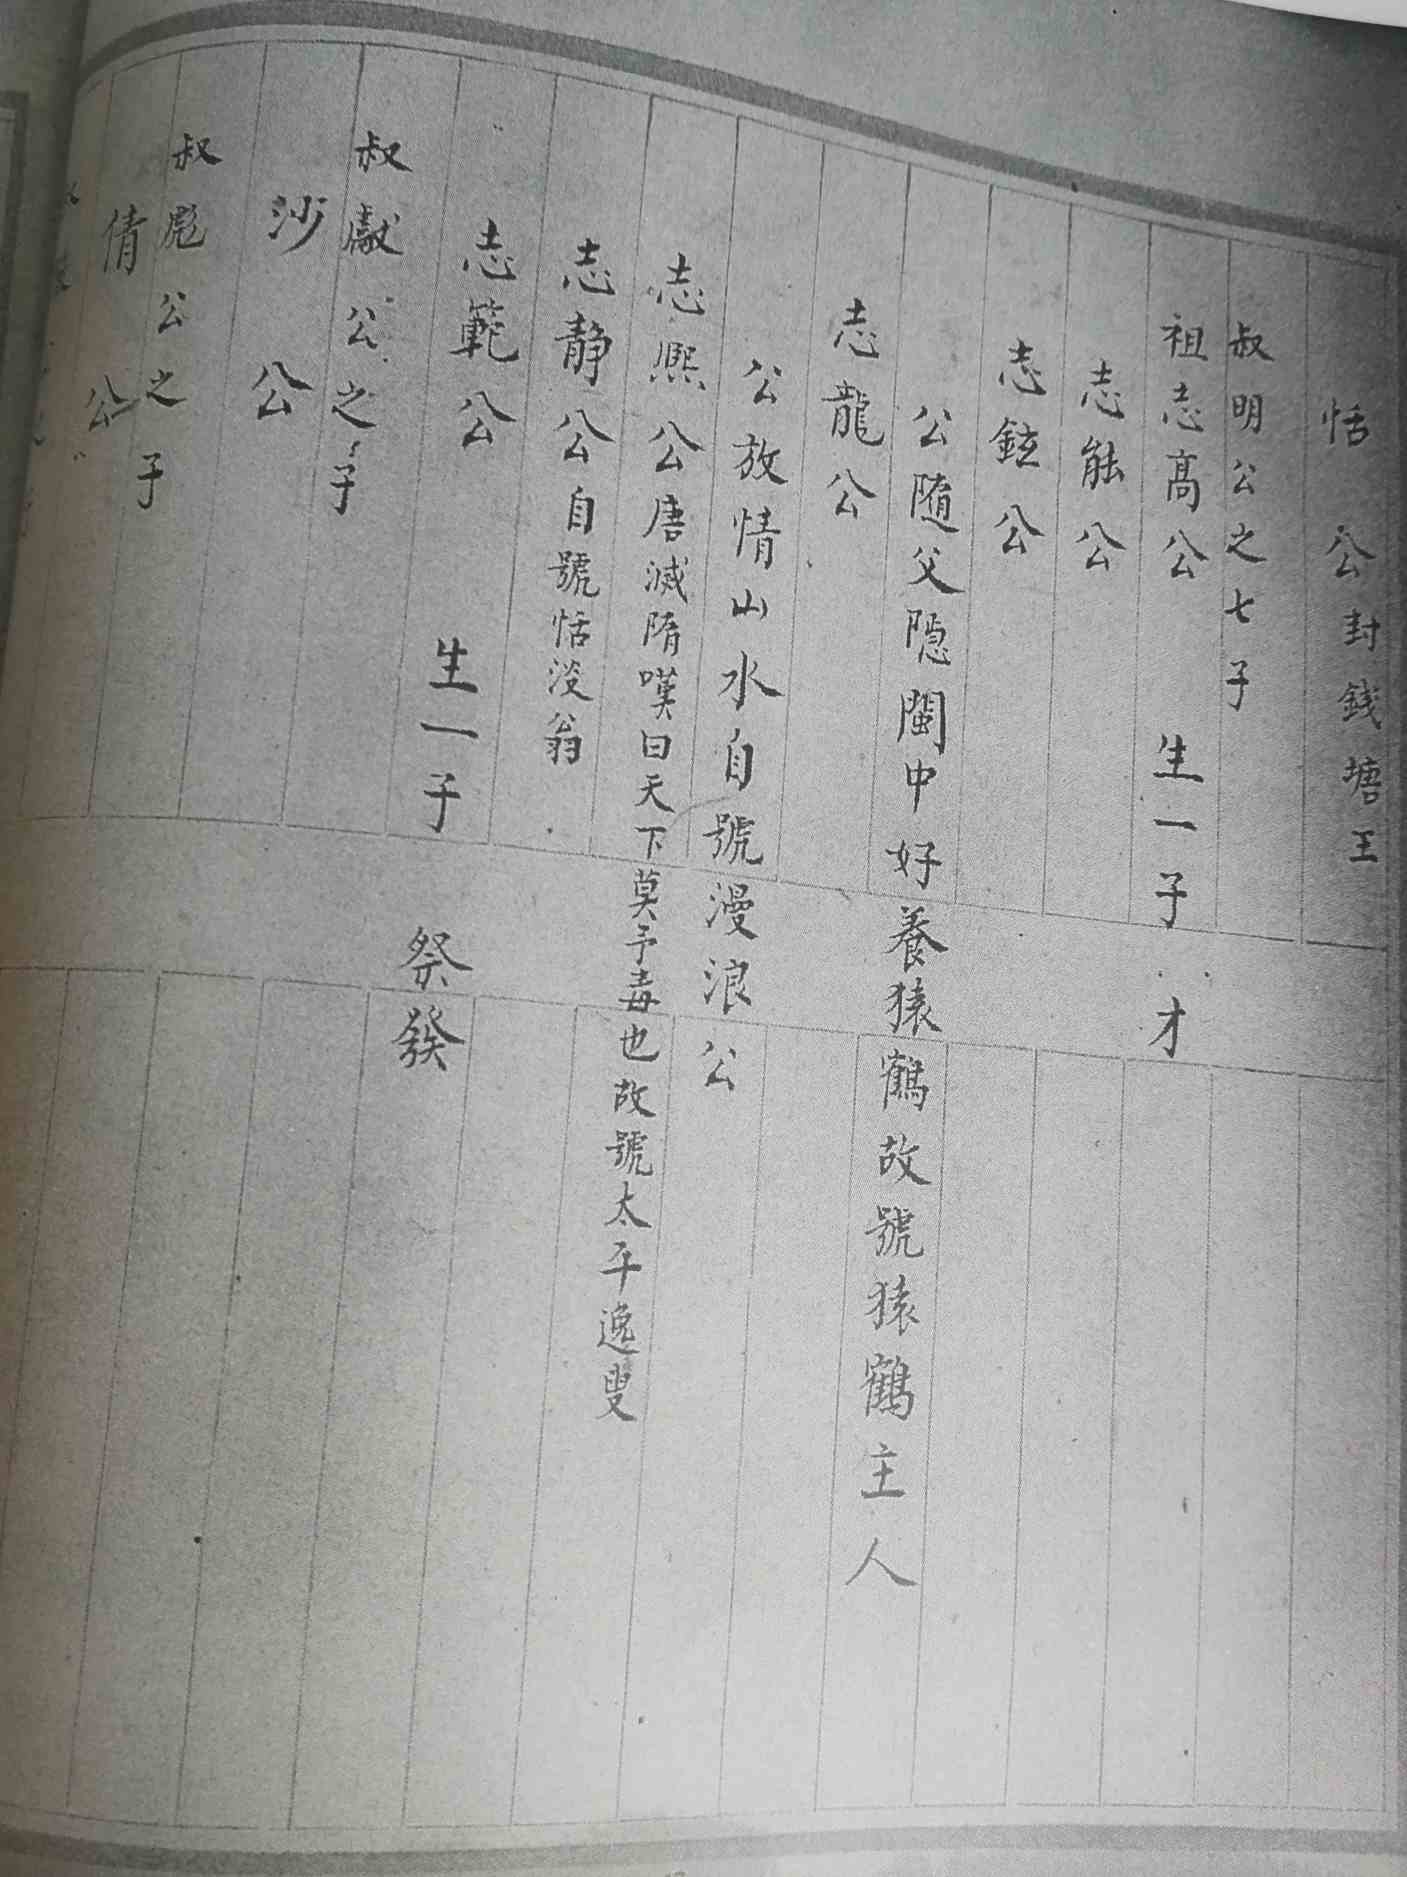 恬公封錢塘王
叔明公之七子
祖志高公 生一子 才
志能公
志鉉公
公隨父隱閩中好養猿鶴故號猿鶴主人
志龍公
公放情山水自號漫浪公
志熈公唐滅隋嘆曰天下莫予毒也故號太平逸叟
志静公自號恬淡翁
志範公 生一子 祭發
叔獻公之子
沙公
叔彪公之子
倩公